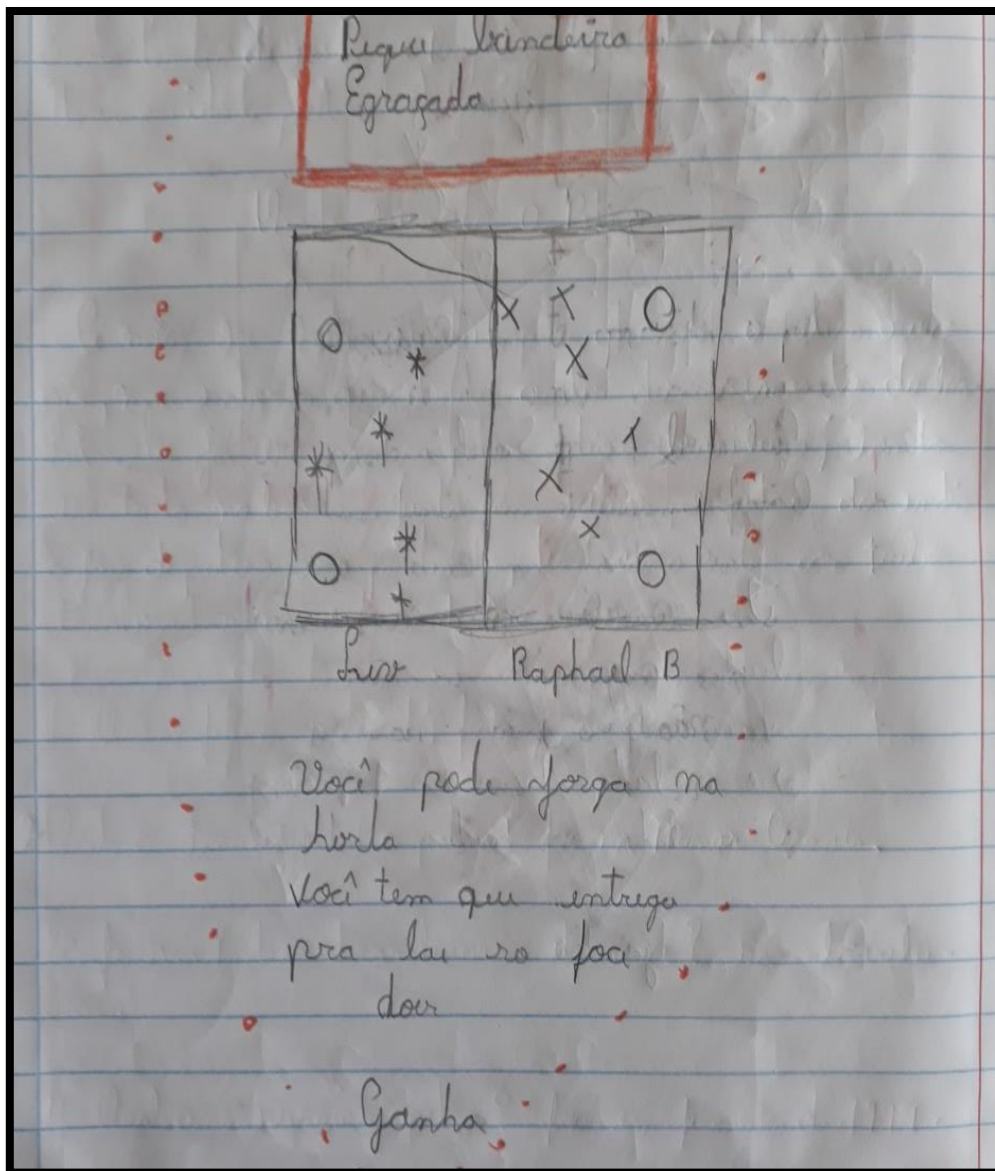 Pique bandeira
Egraçada
Luiz Raphael B
Você pode jorga na
horta
Você tem que entrega
pra lai so foci
dois
Ganha